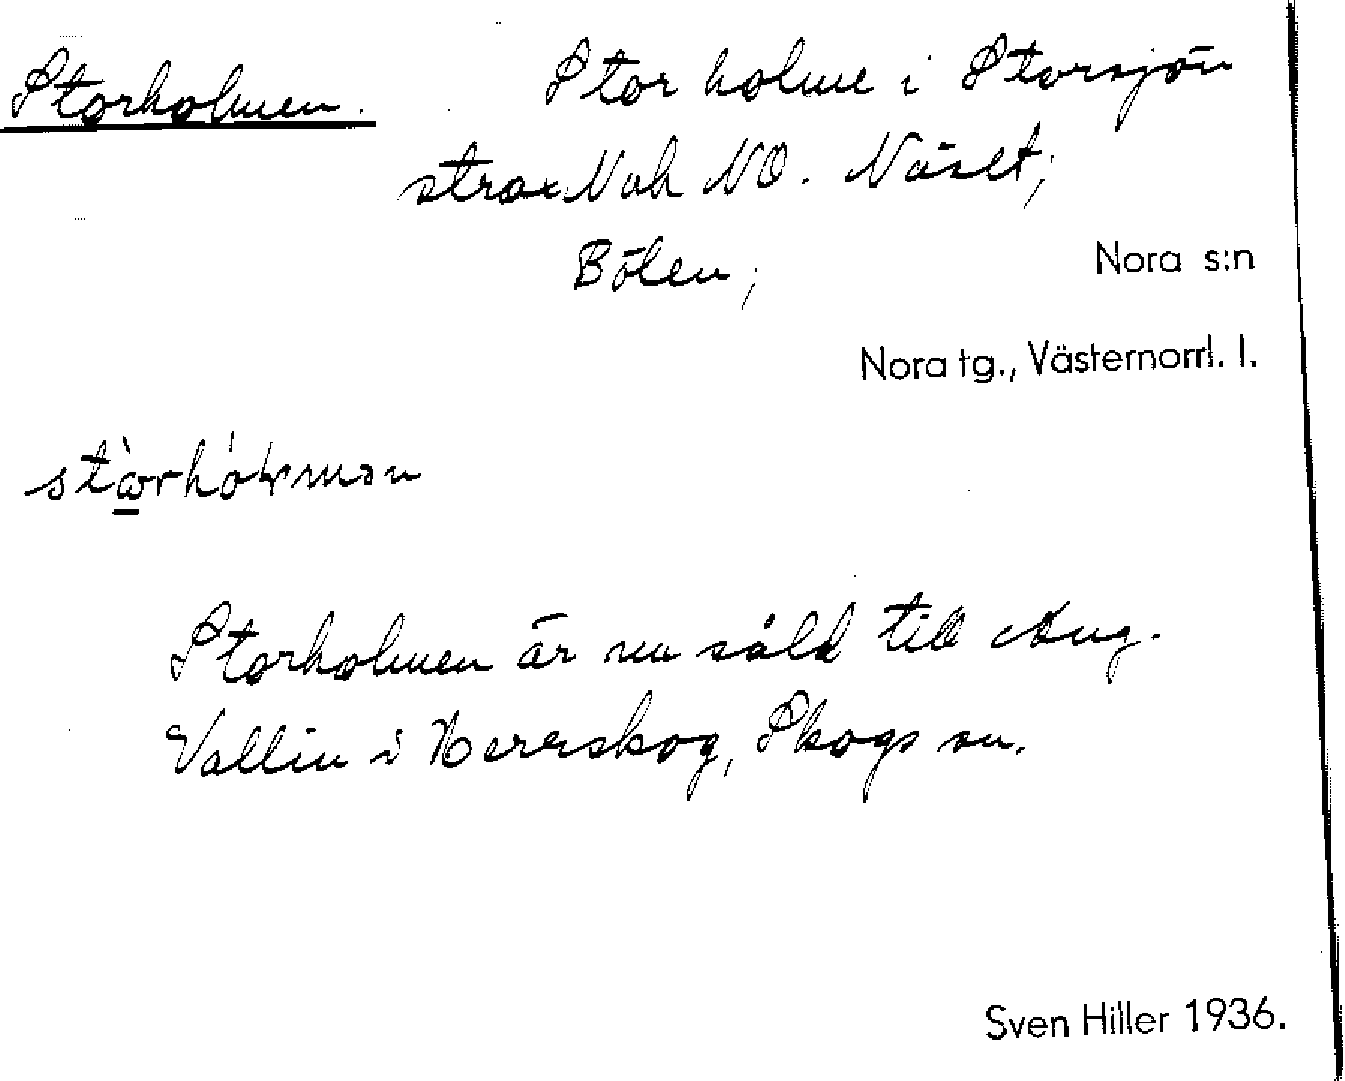 Storholmen. Stor holme i Storsjön
strax N och NO. Näset;
Bölen; Nora s:n
Nora tg., Västernorrl. l.
Storholmen är nu såld till Aug.
Vallin i Herrskog, Skogs sn.
Sven Hiller 1936.